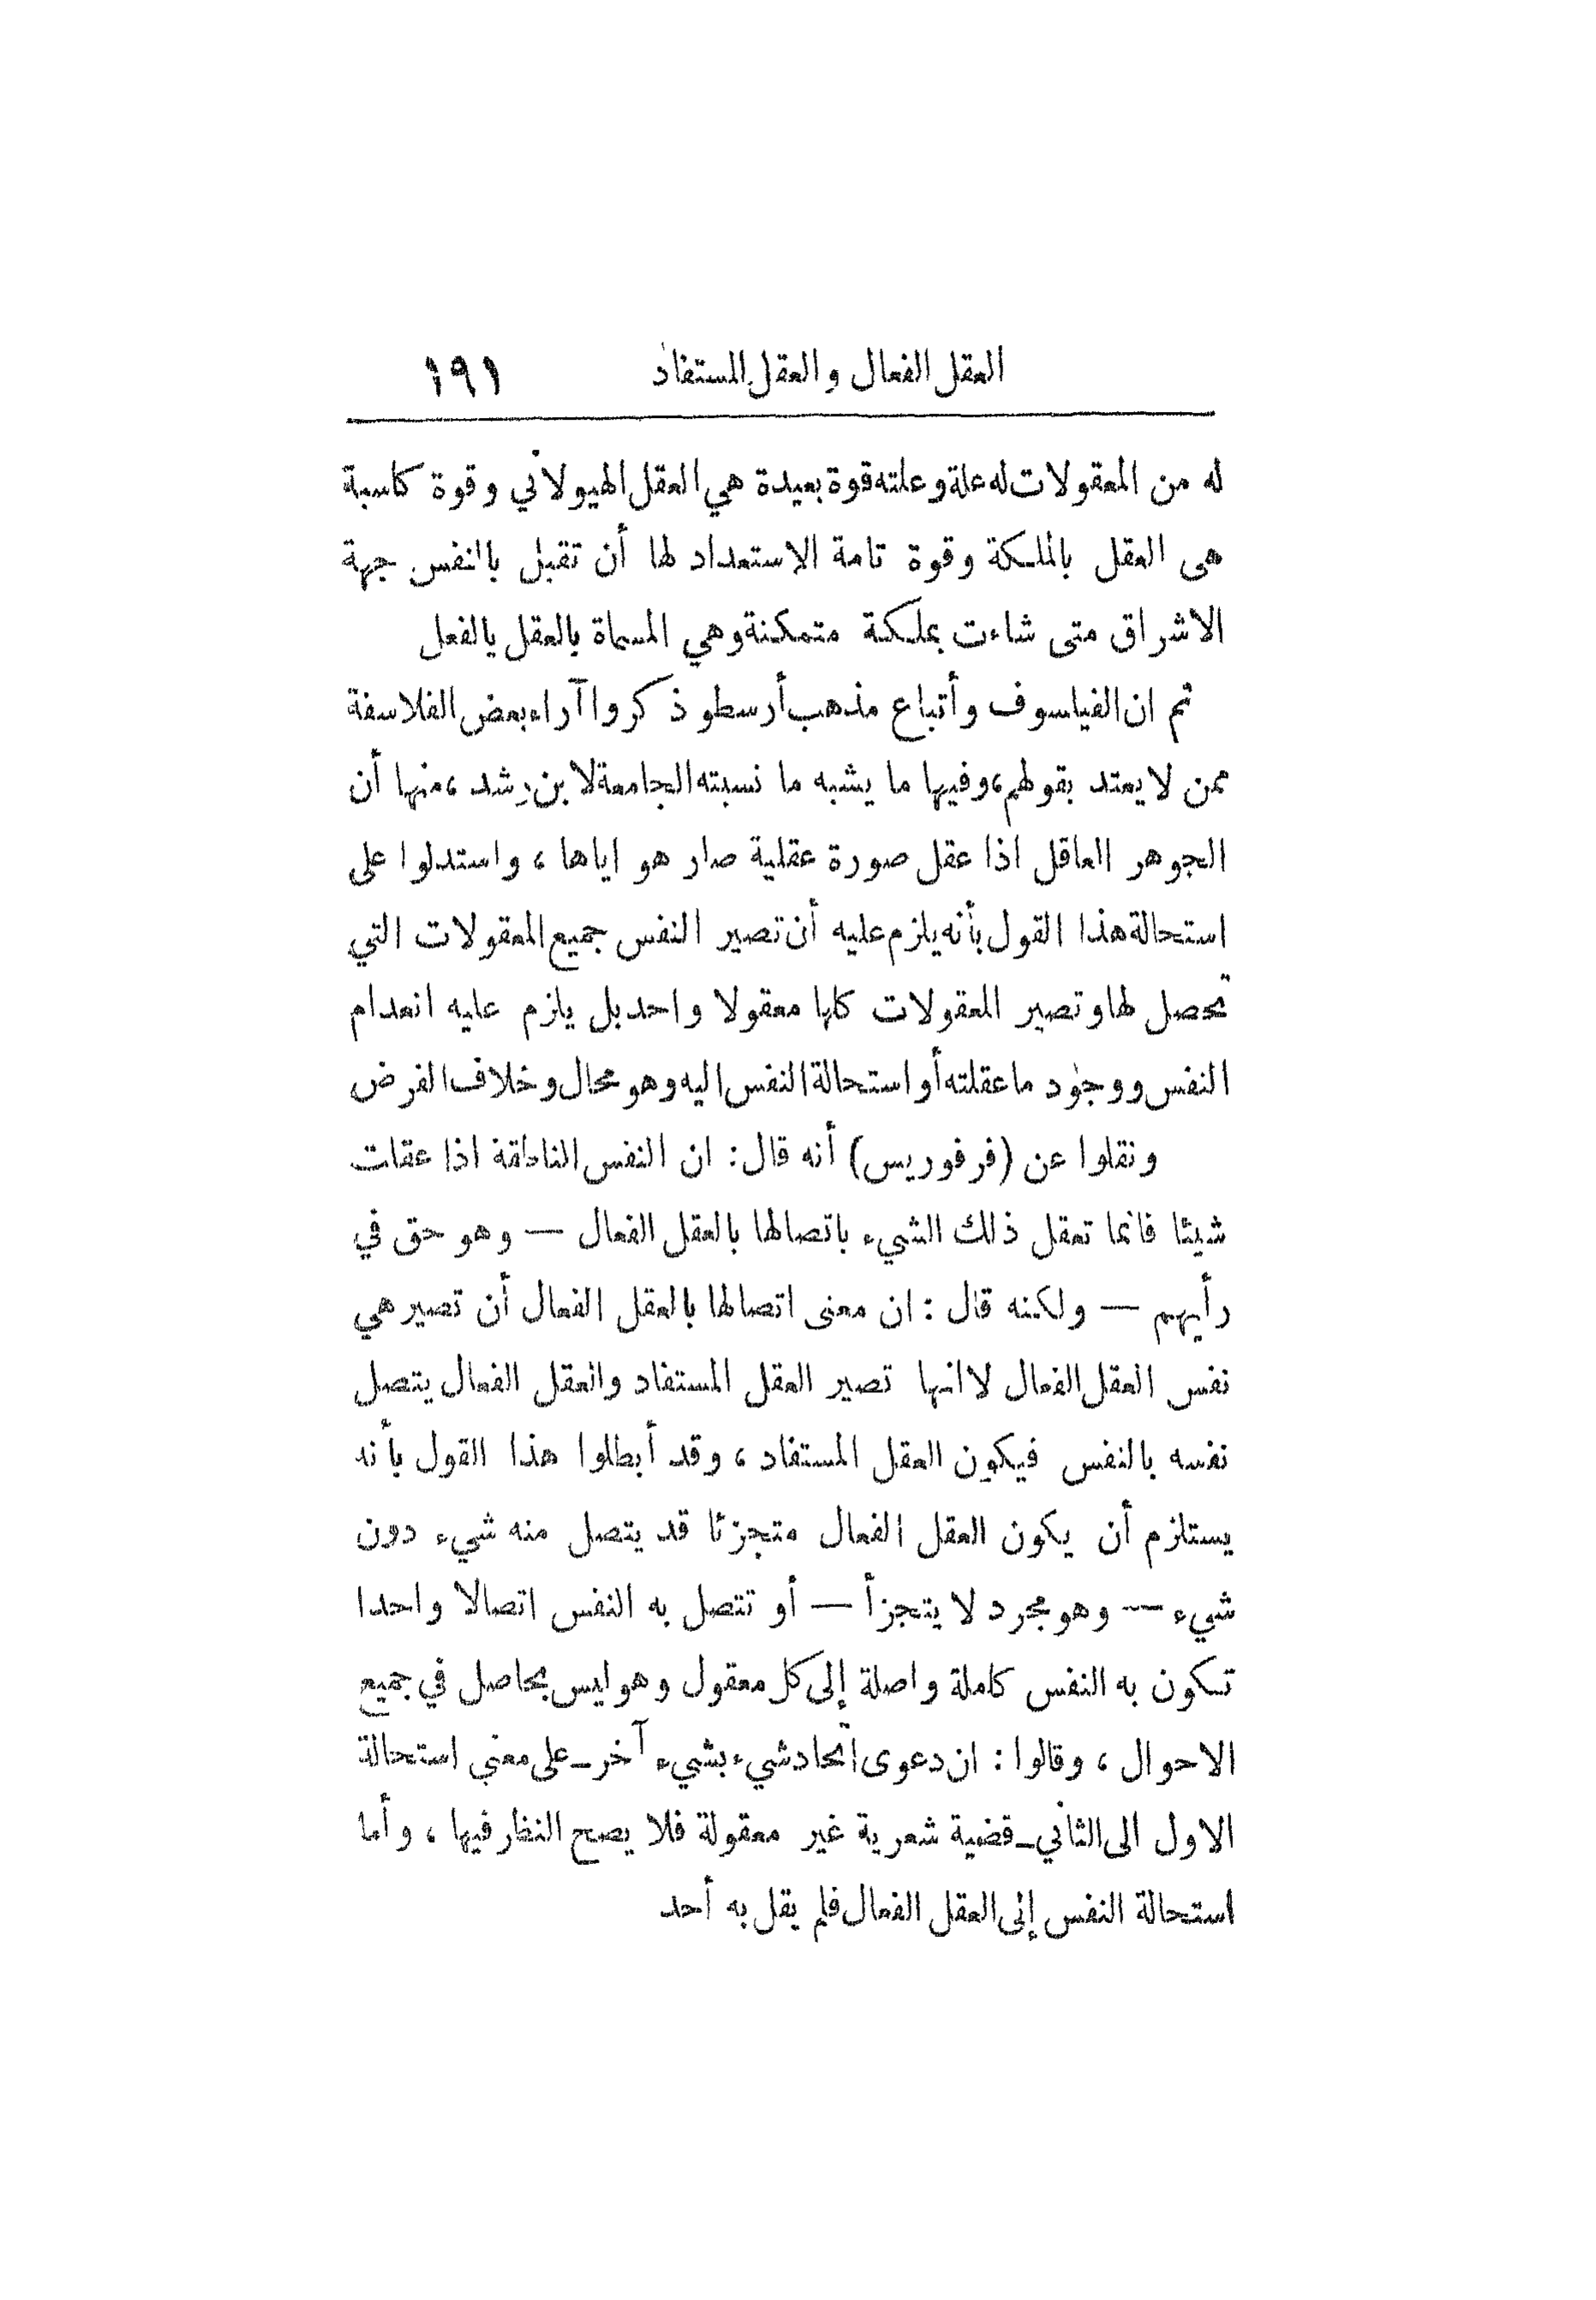 العقل الفعال والعقل المستفاد ١٩١
له من المعقولات له علة وعلته قوة بعيدة هي العقل الهيولاني وقوة كاسبة
هى العقل بالملكة وقوة تامة الاستعداد لها أن تقبل بالنفس جهة
الاشراق متى شاءت بملكة متمكنة وهي المسماة بالعقل بالفعل
ثم ان الفيلسوف وأتباع مذهب أرسطو ذكروا آراء بعض الفلاسفة
ممن لا يعتد بقولهم، وفيها ما يشبه ما نسبته الجامعة لابن رشد، منها أن
الجوهر العاقل اذا عقل صورة عقلية صار هو اياها، واستدلوا على
استحالة هذا القول بأنه يلزم عليه أن تصير النفس جميع المعقولات التي
تحصل لها وتصير المعقولات كلها معقولا واحد بل يلزم عليه انعدام
النفس ووجود ما عقلته أو استحالة النفس اليه وهو محال وخلاف الفرض
ونقلوا عن (فرفوريس) أنه قال: ان النفس الناطقة اذا عقلت
شيئا فانما تعقل ذلك الشيء باتصالها بالعقل الفعال — وهو حق في
رأيهم — ولكنه قال: ان معنى اتصالها بالعقل الفعال أن تصير هي
نفس العقل الفعال لانها تصير العقل المستفاد والعقل الفعال يتصل
نفسه بالنفس فيكون العقل المستفاد، وقد أبطلوا هذا القول بأنه
يستلزم أن يكون العقل الفعال متجزئا قد يتصل منه شيء دون
شيء -- وهو مجرد لا يتجزأ — أو تتصل به النفس اتصالا واحدا
تكون به النفس كاملة واصلة إلى كل معقول وهو ليس بحاصل في جميع
الاحوال، وقالوا: ان دعوى اتحاد شيء بشيء آخر - على معنى استحالة
الاول الى الثاني - قضية شعرية غير معقولة فلا يصح النظر فيها، وأما
استحالة النفس إلى العقل الفعال فلم يقل به أحد